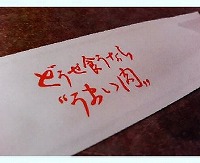 どうせ食うなら
“うまい肉„